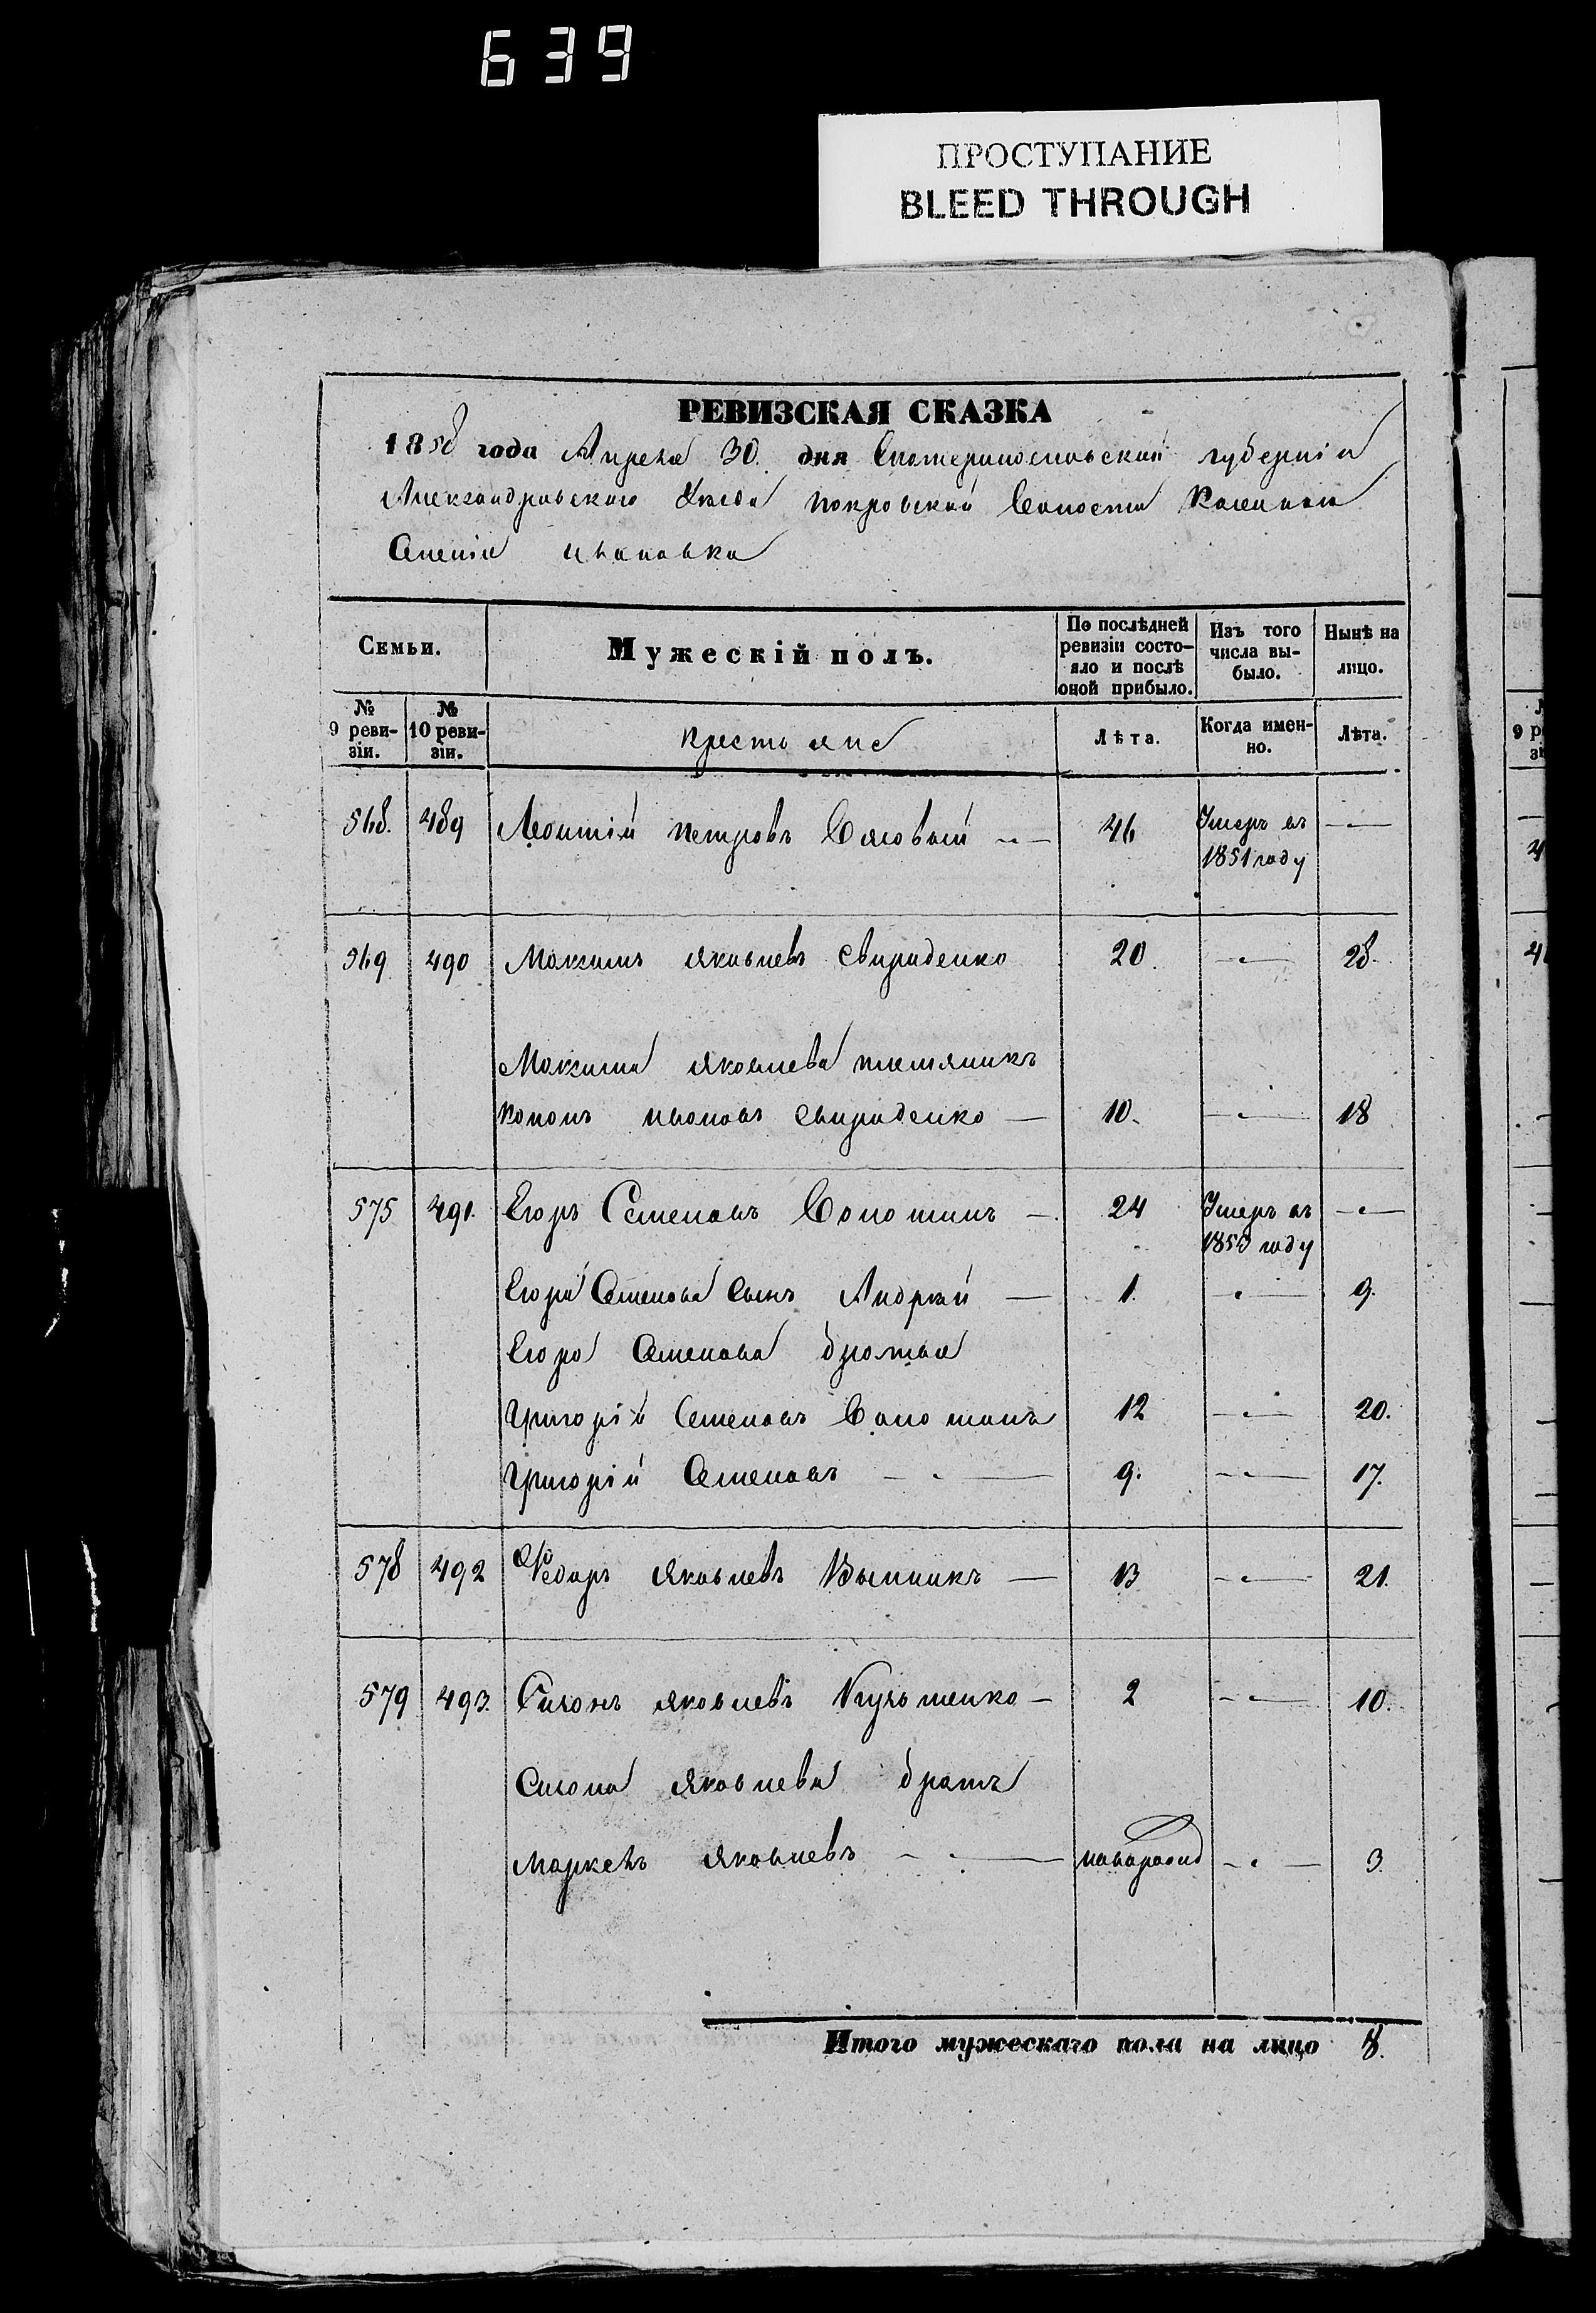 639
ПРОСТУПАНИЕ
BLEED THROUGH
РЕВИЗСКАЯ СКАЗКА
1858 года Апреля 30. дня Екатеринославской губерніи
Александровскаго Уезда Покровской Волости
Селенія Ивановка
Семьи.
Мужескій полъ.
По послѣдней ревизіи состо-яло и послѣ оной прибыло.
Изъ того числа вы-было.
Нынѣ на лицо.
№ 9 реви-зіи.
№ 10 реви-зіи.
Крестьяне
Лѣта.
Когда имен-но.
Лѣта.
568. 489 Леонтій Петровъ 46 Умеръ въ 1851 году —
569 490 Максимъ Яковлевъ Свириденко 20. — 28.
Максима Яковлева племяникъ
Кононъ Ивановъ Свириденко — 10. — 18
575 491. Егоръ Семеновъ — 24 Умеръ въ 1853 году —
Егора Семенова Сынъ Андрей — 1. — 9.
Егора Семенова братья
Григорій Семеновъ 12 — 20.
Григорій Семеновъ — 9. — 17.
578 492 Федоръ Яковлевъ — 13 — 21.
579 493. Яковлевъ — 2 — 10.
Яковлева братъ
Яковлевъ — новорожд — 3
Итого мужескаго пола на лицо 8.